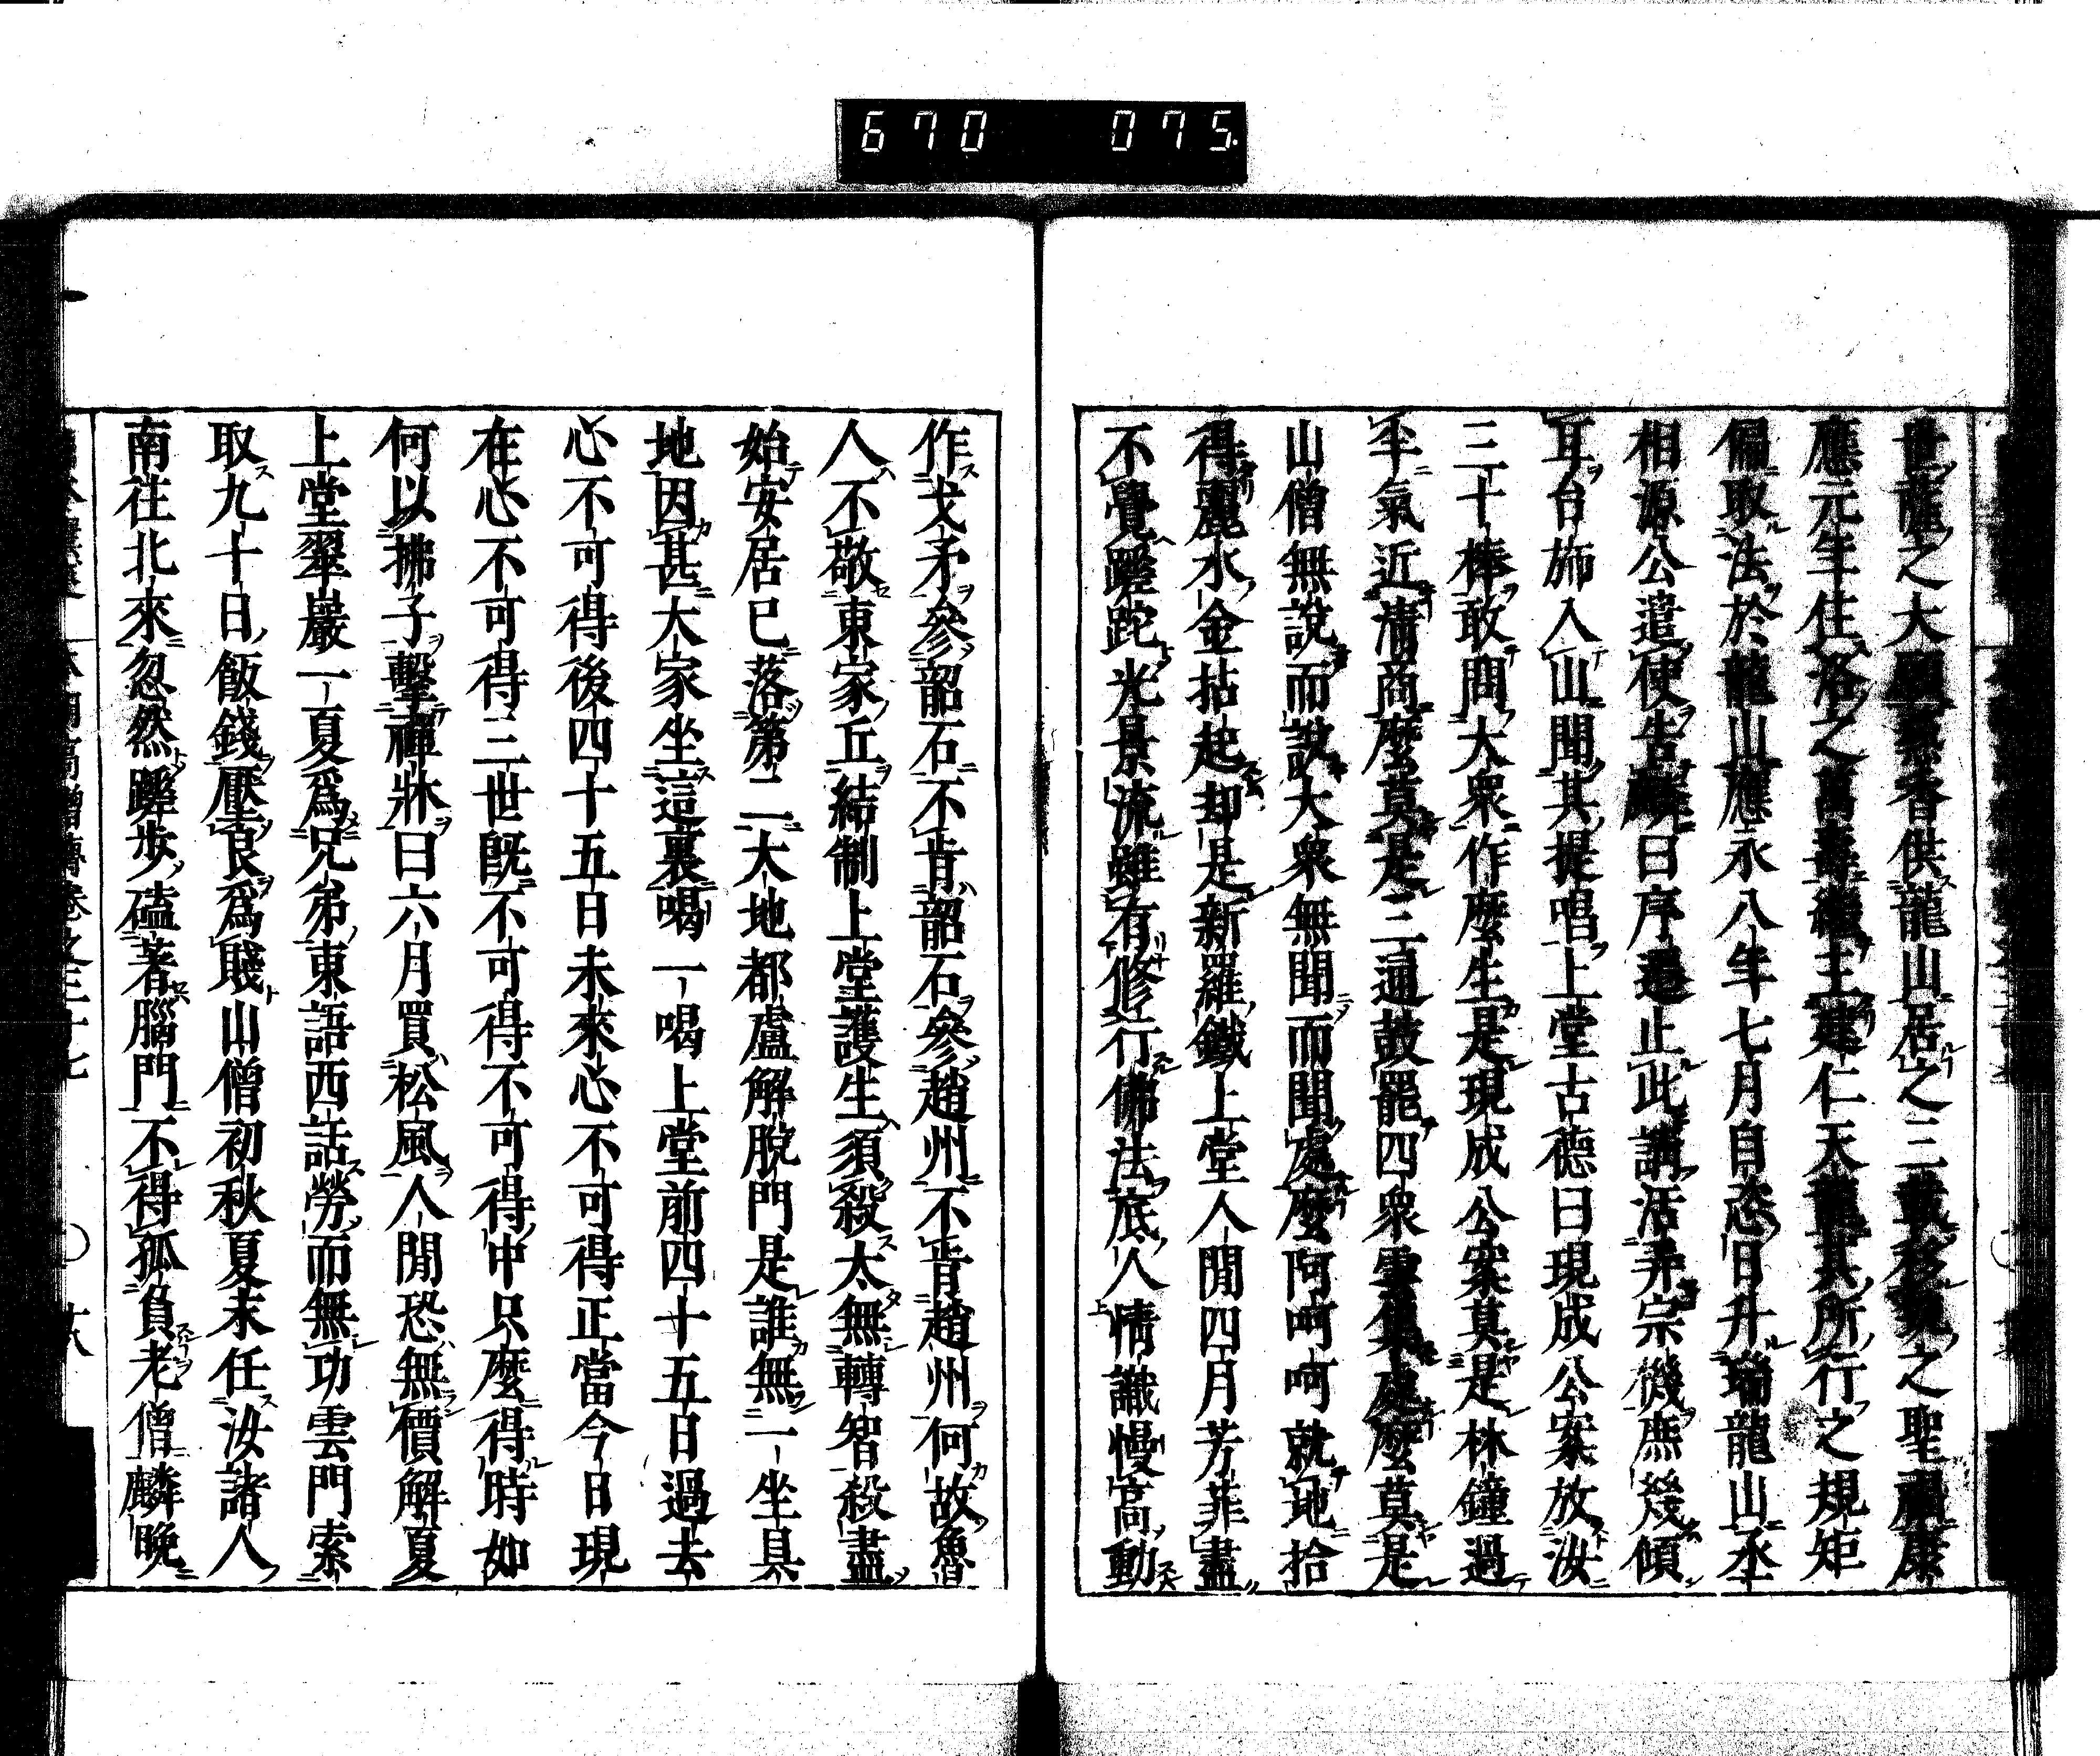 670 075
世薩之大願炙香供龍山居之三載移親之聖福康
應元年住洛之萬壽繼主建仁天龍其所行之規矩
偏取法於龍山應永八年七月自恣日升瑞龍山丞
相源公遣使告麟曰序遷止此講活弄宗機無幾傾
耳台旆入山聞其提唱上堂古德曰現成公案放汝
三十棒敢問大衆作麼生是現成公案莫是林鐘過
半氣近清商麼莫是三通鼓罷四衆雲集處麼莫是
山僧無說而說大衆無聞而聞處麼阿呵呵就地拾
得麗水金拈起却是新羅鐵上堂人間四月芳菲盡
不覺蹉跎光景流雖有修行佛法底人情識慢高動
作戈矛參韶石不肯韶石參趙州不肯趙州何故魯
人不敬東家丘結制上堂護生須殺太無轉智殺盡
始安居已落第二大地都盧解脫門是誰無一坐具
地因甚大家坐這裏喝一喝上堂前四十五日過去
心不可得後四十五日未來心不可得正當今日現
在心不可得三世旣不可得不可得中只麼得時如
何以拂子擊禪牀曰六月買松風人間恐無價解夏
上堂翠巖一夏爲兄弟東語西話勞而無功雲門索
取九十日飯錢壓良爲賤山僧初秋夏末任汝諸人
南往北來忽然蹉步磕著腦門不得孤負老僧麟晚
本朝高僧傳卷之三十七 〇 十八